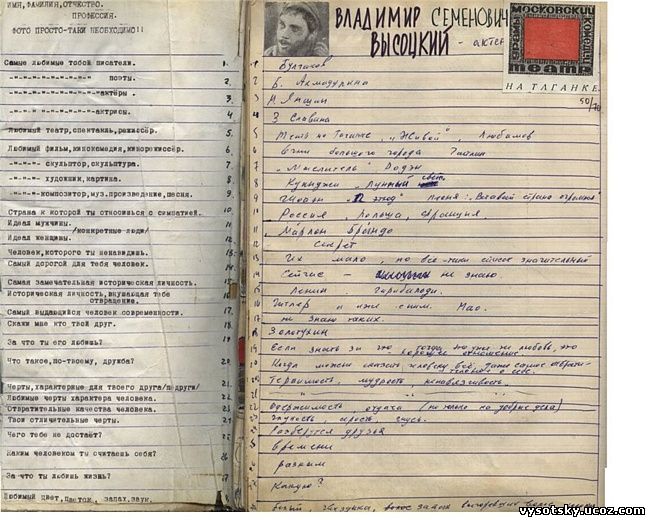 ИМЯ, ФАМИЛИЯ, ОТЧЕСТВО.
ПРОФЕССИЯ.
ФОТО ПРОСТО-ТАКИ НЕОБХОДИМО!!
Самые любимые тобой писатели. 1.
-"-"-"- поэты. 2.
-"-"-"- актёры. 3.
-"-"-"- актрисы. 4.
Любимый театр, спектакль, режиссёр. 5.
Любимый фильм, кинокомедия, кинорежиссёр. 6.
-"-"-"- скульптор, скульптура. 7.
-"-"-"- художник, картина. 8.
-"-"-"-композитор, муз. произведение, песня. 9.
Страна к которой ты относишься с симпатией. 10.
Идеал мужчины. 11
/конкретные люди/
Идеал женщины. 12.
Человек, которого ты ненавидишь. 13.
Самый дорогой для тебя человек. 14.
Самая замечательная историческая личность. 15
Историческая личность, внушающая тебе отвращение. 16.
Самый выдающийся человек современности. 17.
Скажи мне кто твой друг. 18.
За что ты его любишь? 19.
Что такое, по-твоему, дружба? 20.
Черты, характерные для твоего друга/подруги/ 21.
Любимые черты характера человека. 22.
Отвратительные качества человека.
Твои отличительные черты.
Чего тебе не достаёт?
Каким человеком ты считаешь себя?
За что ты любишь жизнь?
Любимый цвет, цветок, запах, звук.
ВЛАДИМИР СЕМЕНОВИЧ
ВЫСОЦКИЙ - актёр
МОСКОВСКИЙ
театр
НА ТАГАНКЕ
50/70
1 Булгаков
2 Б. Ахмадулина
3 М. Яншин
4 З. Славина
5 Театр на Таганке, „Живой" Любимов
6 Огни большого города Чаплин
7 „Мыслитель" Роден
8 Куинджи „Лунный свет"
9 Шопен „12 этюд" песня: „Вставай страна огромная"
10 Россия, Польша, Франция
11 Марлон Брандо
12 Секрет
13 Их мало, но все-таки список значительный
14 Сейчас – не знаю
15 Ленин Гарибальди.
16 Гитлер и иже с ним. Мао.
17 не знаю таких.
18 Золотухин
19 Если знать за что, тогда это уже не любовь, это хорошее отношение.
20 Когда можно сказать человеку всё, даже самое отвратительное о себе.
21 Терпимость, мудрость, ненавязчивость
22 одержимость отдача (но только на добрые дела)
глупость серость, гнусь.
разберутся друзья
времени
разным
Какую?
vysotsky.ucoz.com